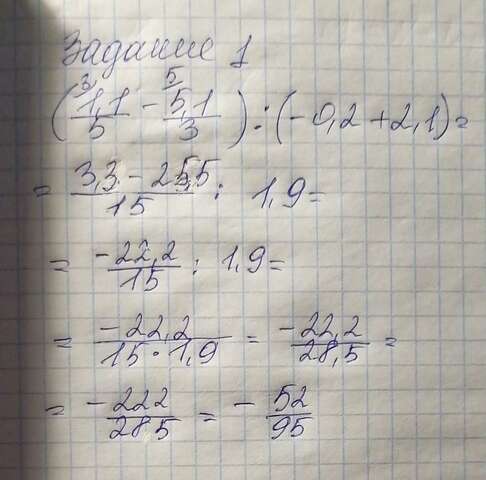 Задание 1
(³1,1/5 - ⁵5,1/3) : (-0,2 + 2,1) =
= 3,3 - 25,5/15 : 1,9 =
= -22,2/15 : 1,9 =
= -22,2/15 · 1,9 = -22,2/28,5 =
= -222/285 = - 52/95